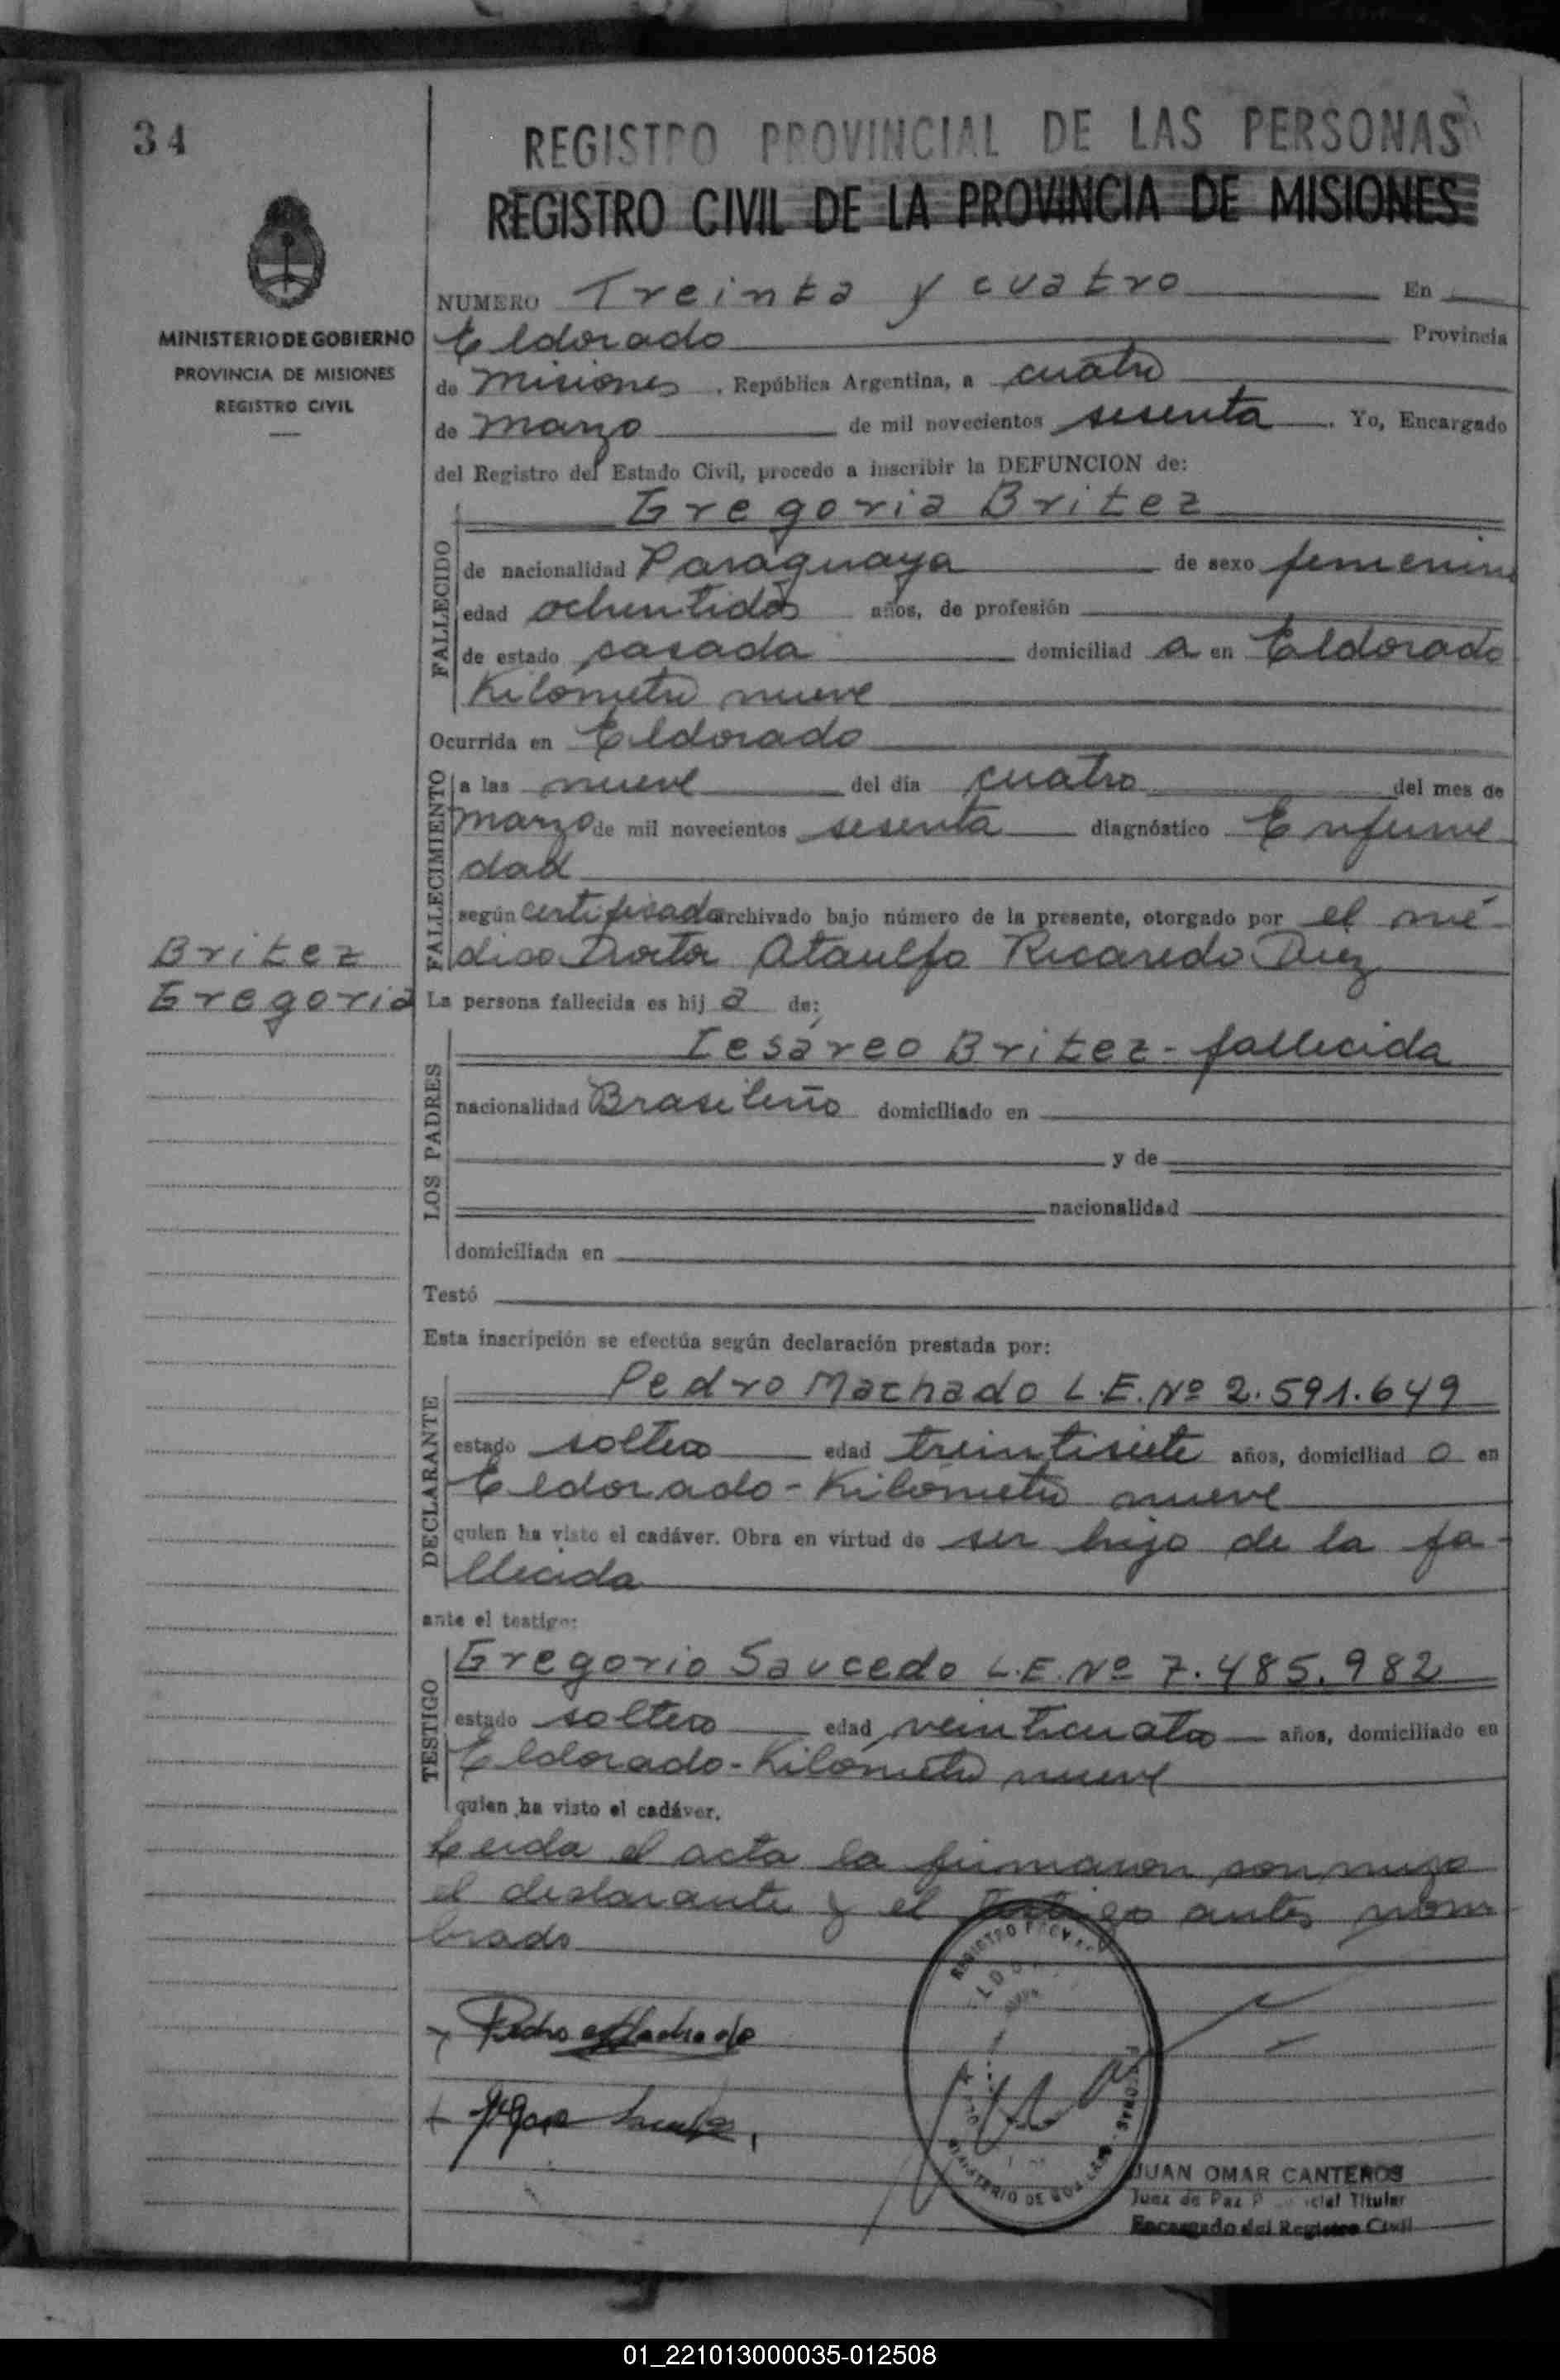 34
REGISTRO PROVINCIAL DE LAS PERSONAS
REGISTRO CIVIL DE LA PROVINCIA DE MISIONES
MINISTERIO DE GOBIERNO
PROVINCIA DE MISIONES
REGISTRO CIVIL
NUMERO Treinta y cuatro En
Eldorado Provincia
de Misiones, República Argentina, a cuatro
de Marzo de mil novecientos sesenta. Yo, Encargado
del Registro del Estado Civil, procedo a inscribir la DEFUNCION de:
FALLECIDO
Gregoria Britez
de nacionalidad Paraguaya de sexo femenino
edad ochentidos años, de profesión
de estado casada domiciliad a en Eldorado
Kilómetro nueve
Ocurrida en Eldorado
FALLECIMIENTO
a las nueve del día cuatro del mes de
Marzo de mil novecientos sesenta diagnóstico Enferme
dad
según certificado archivado bajo número de la presente, otorgado por el mé-
dico Doctor Ataulfo Ricaredo Diez
Britez
Gregoria
La persona fallecida es hij a de:
LOS PADRES
Cesáreo Britez - fallecida
nacionalidad Brasileño domiciliado en
y de
nacionalidad
domiciliada en
Testó
Esta inscripción se efectúa según declaración prestada por:
DECLARANTE
Pedro Machado L.E. Nº 2.591.649
estado soltero edad treintisiete años, domiciliad o en
Eldorado - Kilómetro nueve
quien ha visto el cadáver. Obra en virtud de ser hijo de la fa-
llecida
ante el testigo:
TESTIGO
Gregorio Saucedo L.E. Nº 7.485.982
estado soltero edad veinticuatro años, domiciliado en
Eldorado - Kilómetro nueve
quien ha visto el cadáver.
Leida el acta la firmaron conmigo
el declarante y el testigo antes nom
brado
Pedro Machado
JUAN OMAR CANTEROS
Juez de Paz Titular
Encargado del Registro Civil
01_221013000035-012508